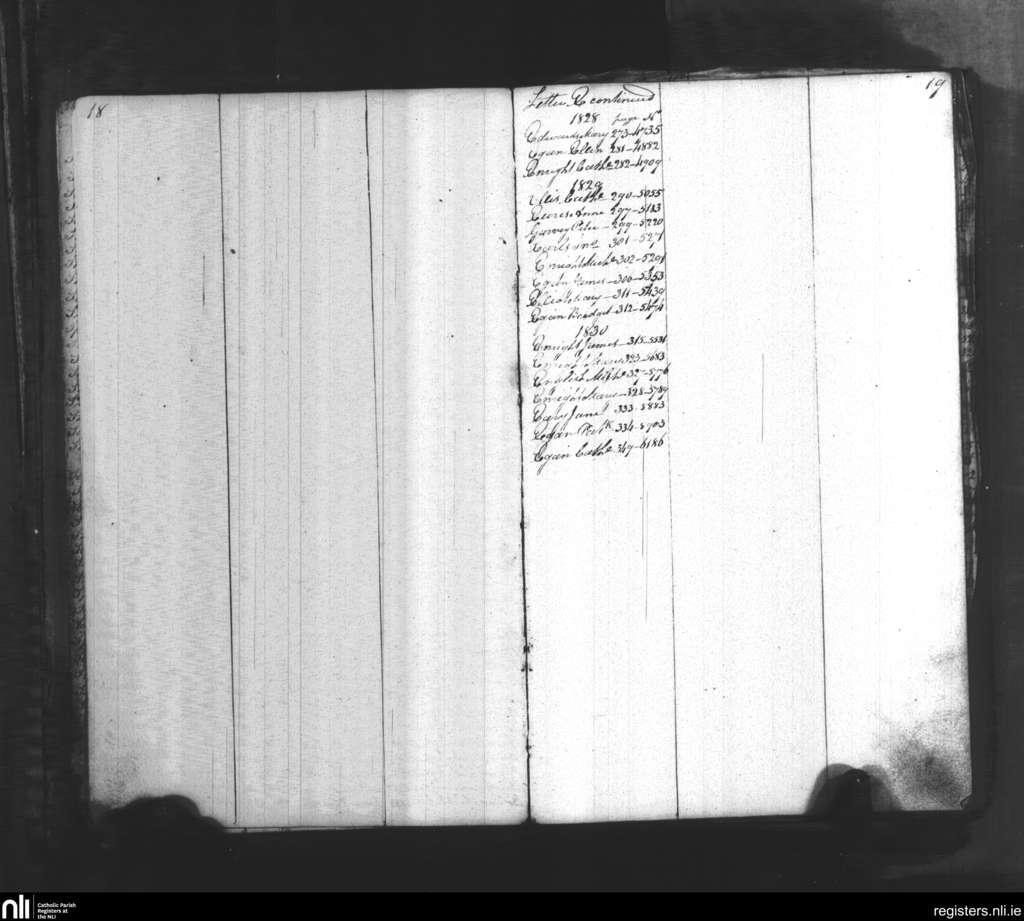 18
19
Letter E continued
1828 page No
Edwards Mary 273-4735
Egan Ellen 281-4882
Enright Cathe 282-4909
1829
Cathe 290-5055
Anne 297-5183
Garvey Peter 299-5220
301-527
Enright 302-5291
Egan James 306-5353
Mary 311-5430
Egan Bridget 312-5474
1830
Enright James 315-5531
323-5683
English 327-5776
Enright 328-5789
Jane 333-5883
Egan Patk 334-5903
Egan Cathe 349-6186
nli
Catholic Parish
Registers at
the NLI
registers.nli.ie